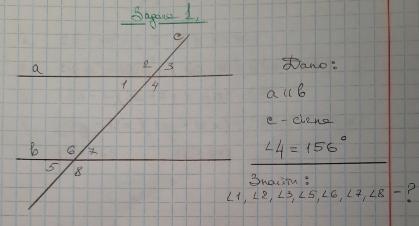 Задача 1.
c
a
2 3
1 4
b
6 7
5 8
Дано:
a ıı b
c - січна
∠4 = 156°
Знайти:
∠1, ∠2, ∠3, ∠5, ∠6, ∠7, ∠8 - ?